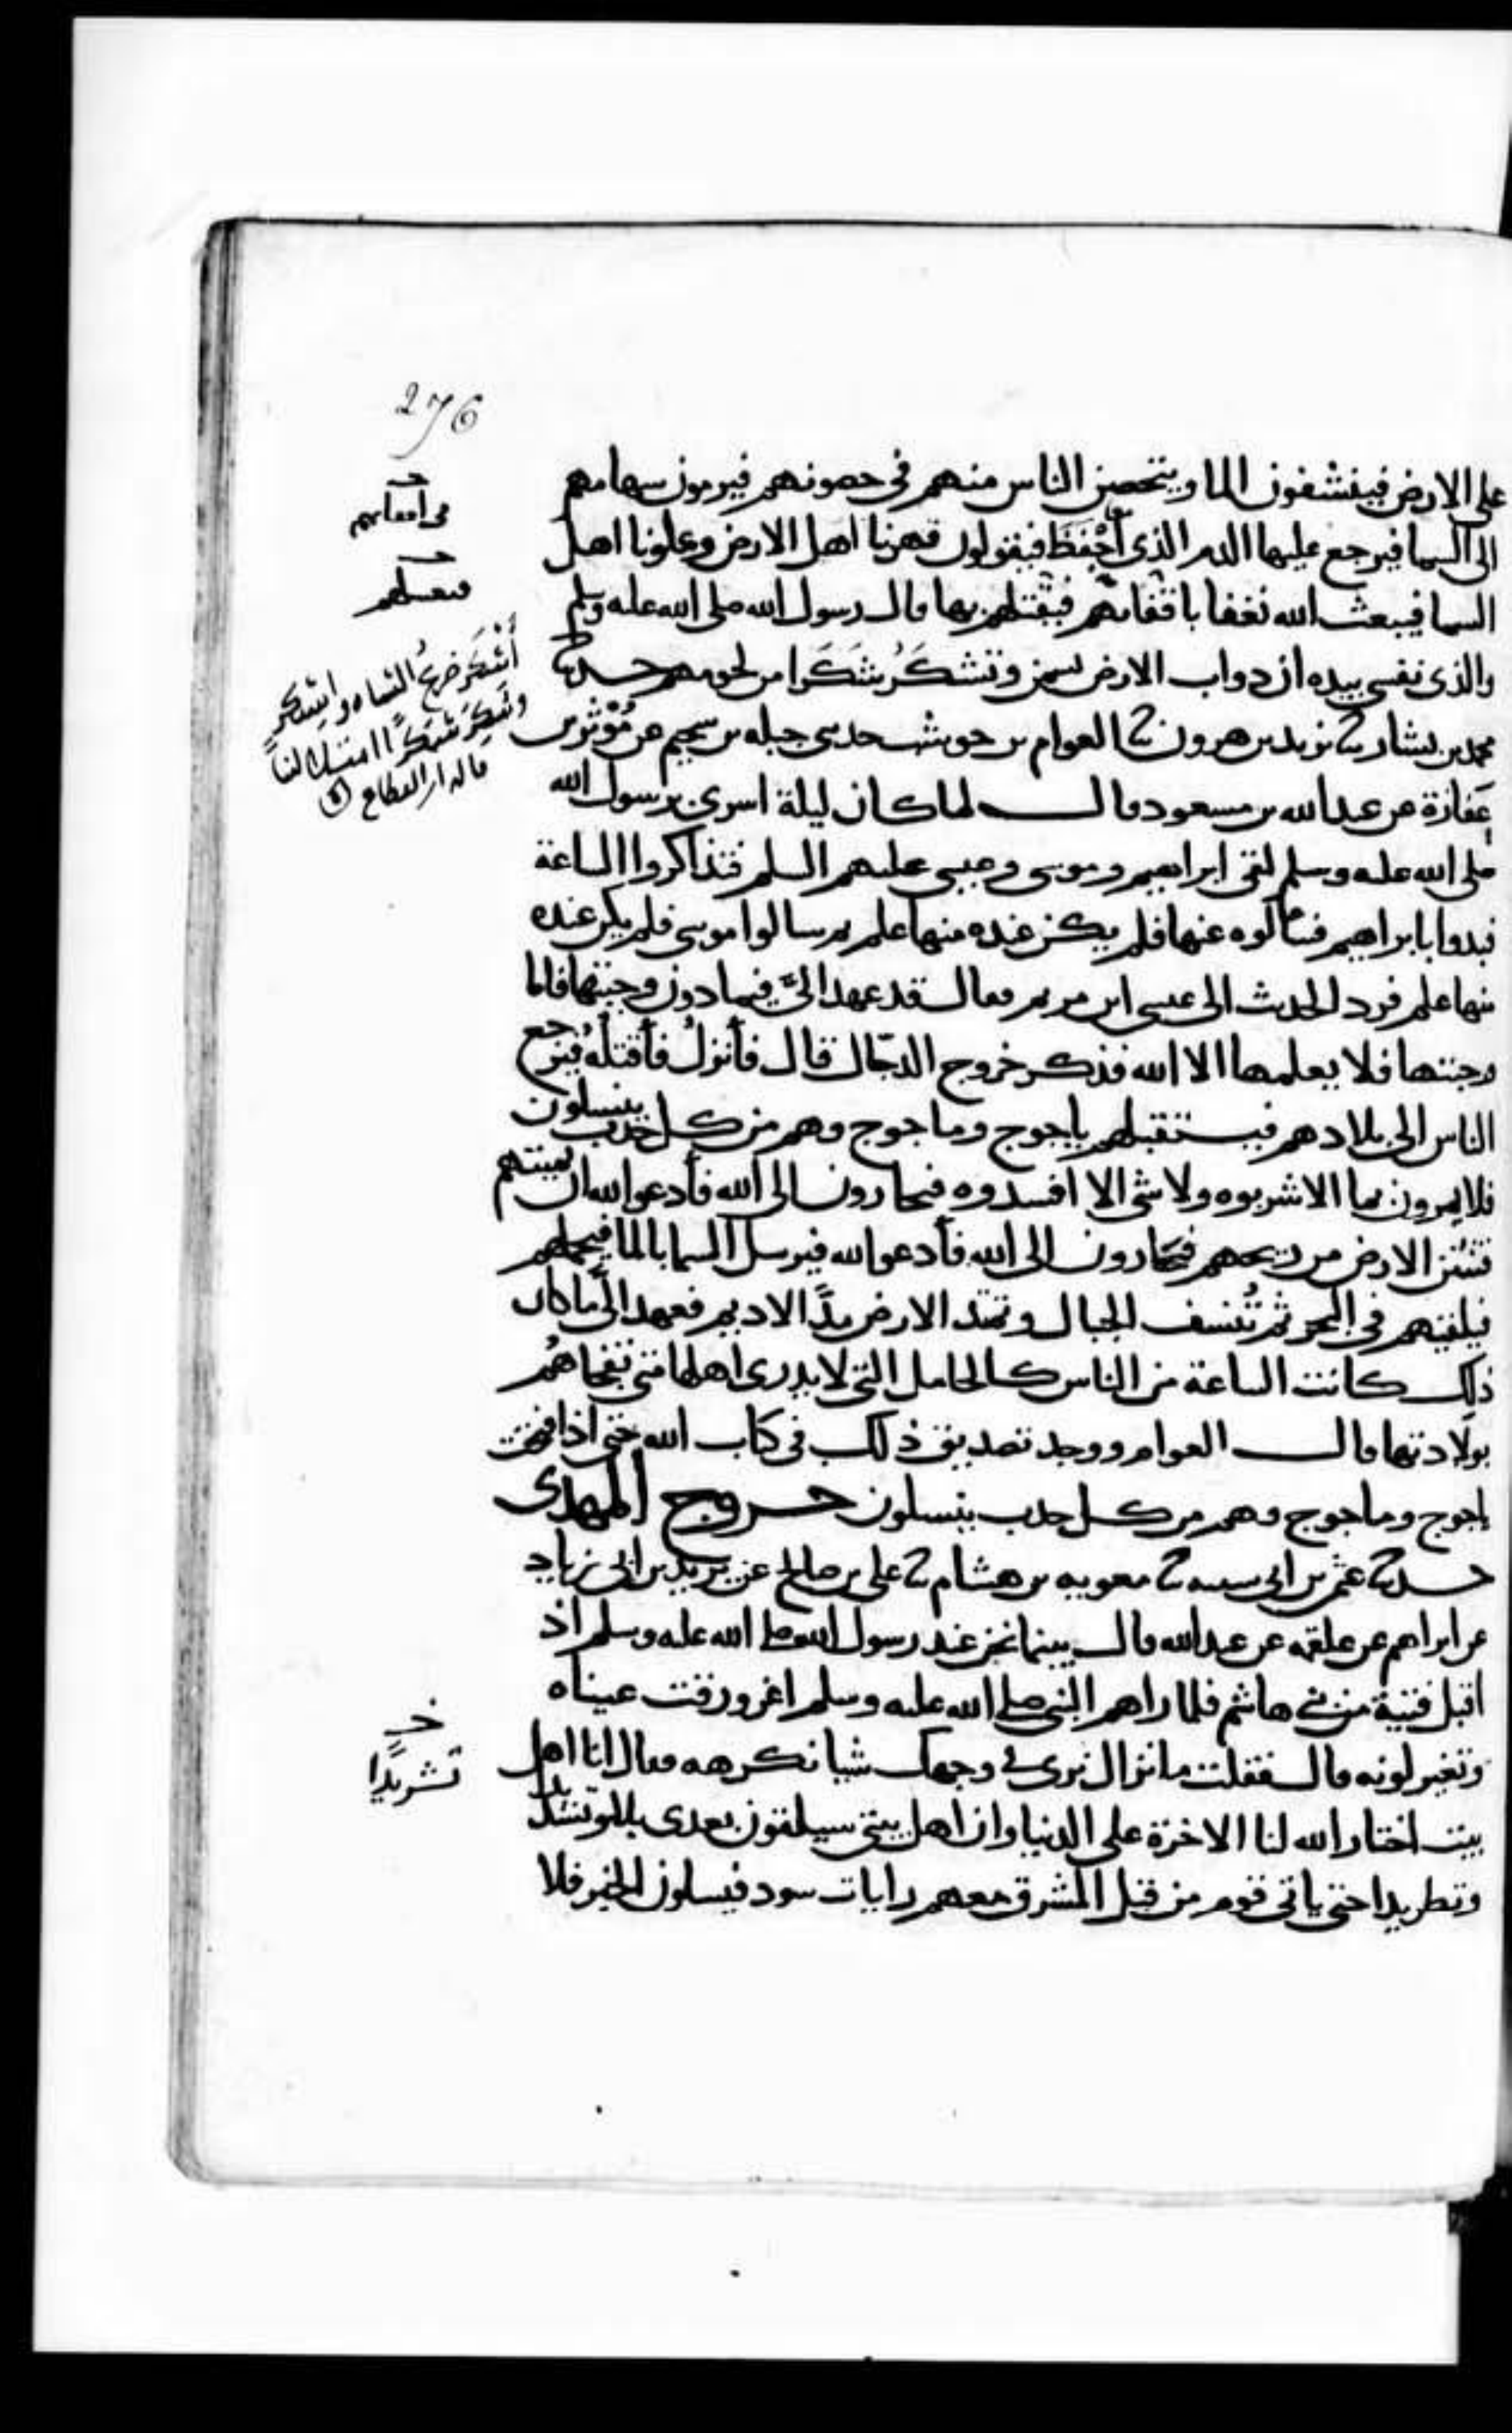 276
على الارض فينشفون الما ويتحصن الناس منهم في حصونهم فيرمون سهامهم
الى السما فيرجع عليها الدم الذي اجفظ فيقولون قهرنا اهل الارض وعلونا اهل
السما فيبعث الله نغفا باقفائهم فيقتلهم بها قال رسول الله صلى الله عليه وسلم
والذي نفسي بيده ان دواب الارض تسمن وتشكَرُ شَكَرا من لحومهم حدثنا
محمد بن بشار ثنا يزيد بن هرون ثنا العوام بن حوشب حدثني جبله بن سحيم عن مُؤْثر بن
عَفازة عن عبد الله بن مسعود قال لما كان ليلة اسري برسول الله
صلى الله عليه وسلم لقي ابراهيم وموسى وعيسى عليهم السلم فتذاكروا الساعة
فبدوا بابراهيم فسالوه عنها فلم يكن عنده منها علم ثم سالوا موسى فلم يكن عنده
منها علم فرد الحديث الى عيسى ابن مريم فقال قد عهد اليَّ فيما دون وجبتها فاما
وجبتها فلا يعلمها الا الله فذكر خروج الدجّال قال فأنزلُ فأقتلُه فيرجع
الناس الى بلادهم فيستقبلهم ياجوج وماجوج وهم من كل حدب ينسلون
فلا يمرون بما الا شربوه ولا شي الا افسدوه فيجارون الى الله فأدعو الله ان يميتهم
فتنتن الارض من ريحهم فيجارون الى الله فأدعو الله فيرسل السما بالما فيحملهم
فيلقيهم في البحر ثم تُنسف الجبال وتمد الارض مدَّ الاديم فعهد اليَّ ما كان
ذلك كانت الساعة من الناس كالحامل التي لا يدري اهلها متى تفجاهُم
بولادتها قال العوام ووجد تصديق ذلك في كتاب الله حتى اذا فتحت
ياجوج وماجوج وهم من كل حدب ينسلون خروج المهدي
حدثنا عثمن بن ابي شيبه ثنا معويه بن هشام ثنا علي بن صالح عن يزيد بن ابي زياد
عن ابراهيم عن علقمه عن عبد الله قال بينما نحن عند رسول الله صلى الله عليه وسلم اذ
اقبل فتية من بني هاشم فلما راهم النبي صلى الله عليه وسلم اغرورقت عيناه
وتغير لونه قال فقلت ما نزال نرى في وجهك شيا نكرهه فقال انا اهل
بيت اختار الله لنا الاخرة على الدنيا وان اهل بيتي سيلقون بعدي بلا وتشديدا
وتطريدا حتى ياتي قوم من قبل المشرق معهم رايات سود فيسلون الخير فلا
في اقفائهم
فيقتلهم
أَشكَرَ ضرعُ الشاه واشتكر
وشَكِرَ شَكَرًا امتلا لبناً
قاله ابن القطاع
خ
تشريدًا